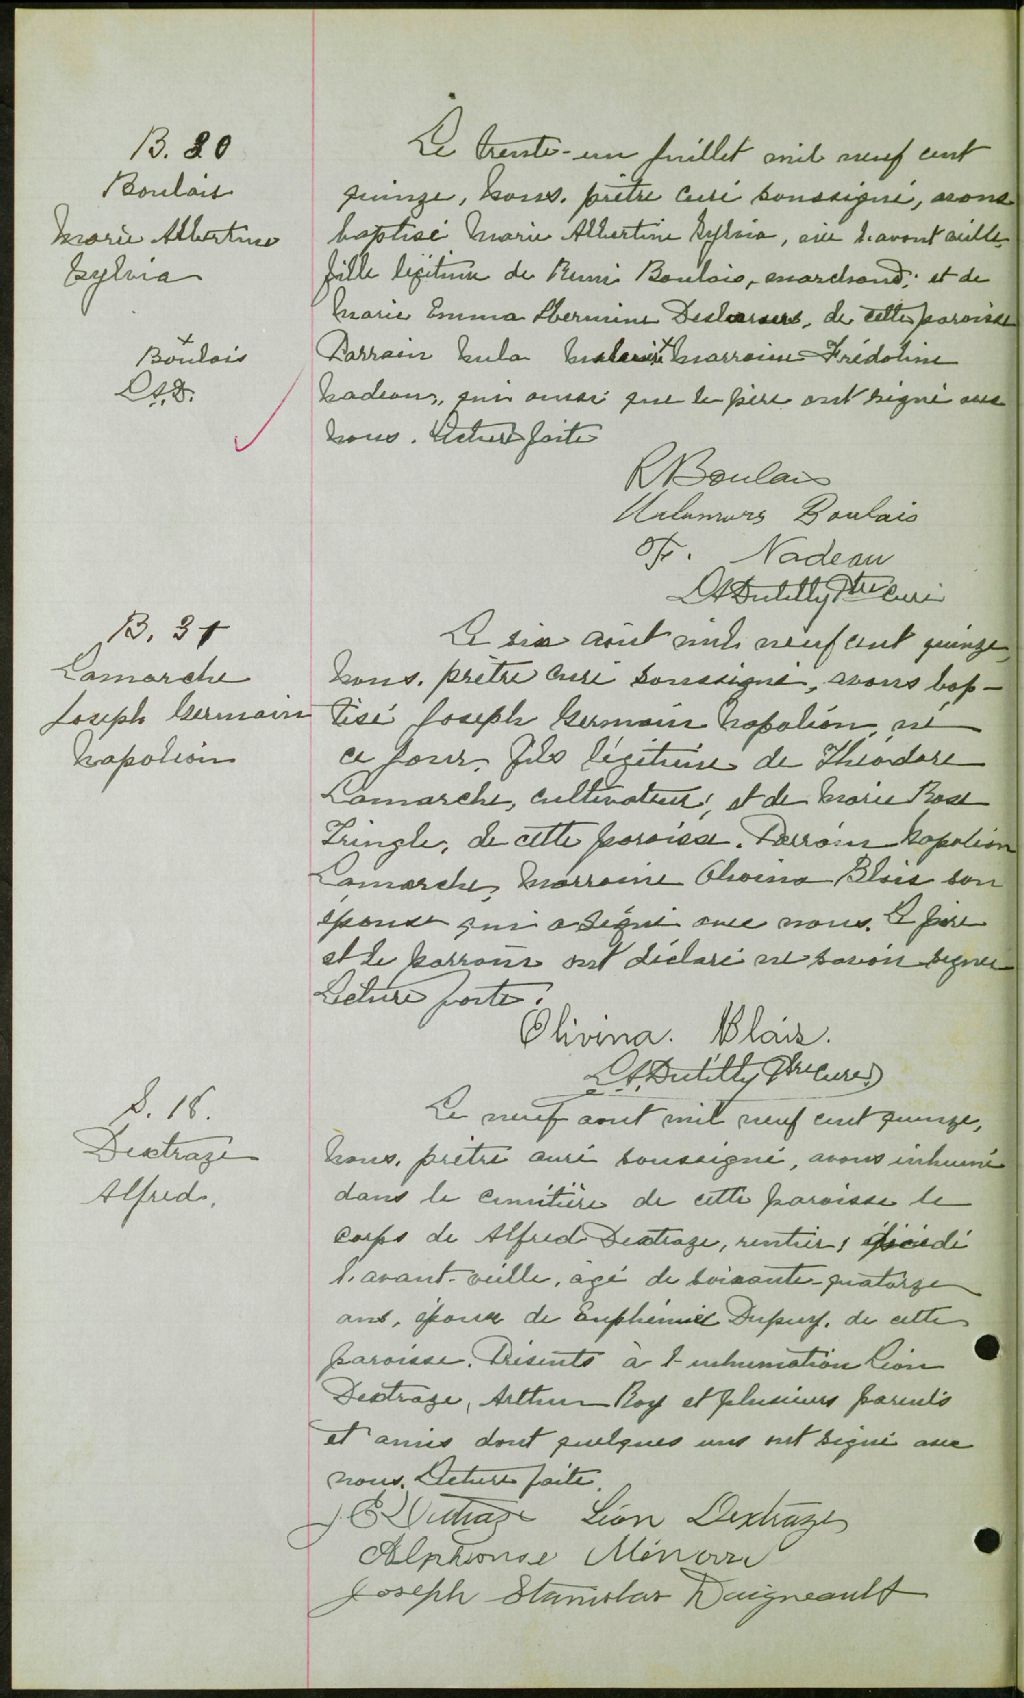 B. 30
Boulais
Marie Albertine
Sylvia
+
Boulais
L.A.D.
Le trente-un juillet mil neuf cent
quinze, Nous, prêtre curé soussigné, avons
baptisé Marie Albertine Sylvia, née l'avant veille,
fille légitime de Remi Boulais, marchand; et de
Marie Emma Hermine Deslauriers, de cette paroisse
Parrain + Marraine Frédoline
Nadeau, qui ainsi que le père ont signé avec
Nous. Lecture faite
R Boulais
Boulais
F. Nadeau
L A Dutilly Ptre Curé
B. 31
Lamarche
Joseph Germain
Napoléon
Le six août mil neuf cent quinze,
Nous, prêtre curé soussigné, avons bap-
tisé Joseph Germain Napoléon, né
ce jour, fils légitime de Théodore
Lamarche, cultivateur, et de Marie Rose
Fringle, de cette paroisse. Parrain Napoléon
Lamarche, Marraine Olivina Blais son
épouse qui a signé avec nous. Le père
et le parrain ont déclaré ne savoir signer
Lecture faite.
Olivina. Blais.
L.A. Dutilly Ptre Curé
S. 18.
Dextraze
Alfred.
Le neuf aout mil neuf cent quinze,
Nous, prêtre curé soussigné, avons inhumé
dans le cimetière de cette paroisse le
corps de Alfred Dextraze, rentier, décédé
l'avant-veille, agé de soixante-quatorze
ans, époux de Euphémie Dupuy, de cette
paroisse. Présents à l'inhumation Léon
Dextraze, Arthur Roy et plusieurs parents
et amis dont quelques uns ont signé avec
nous. Lecture faite.
J E Dextraze Léon Dextraze
Alphonse Ménard
Joseph Stanislas Daigneault